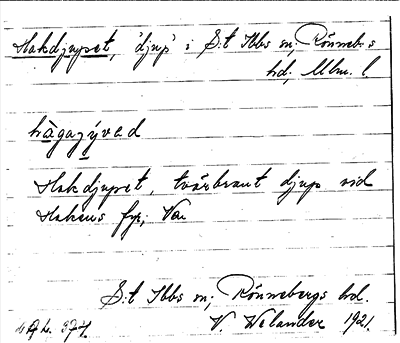 Hakdjupet, 'djup' i S:t Ibbs sn; Rönneb:s
hd; Mlm. l
hàgajỳved
Hakdjupet, tvärbrant djup vid
Hakens fyr, Ven
S:t Ibbs sn; Rönnebergs hd.
V. Welander 1921.